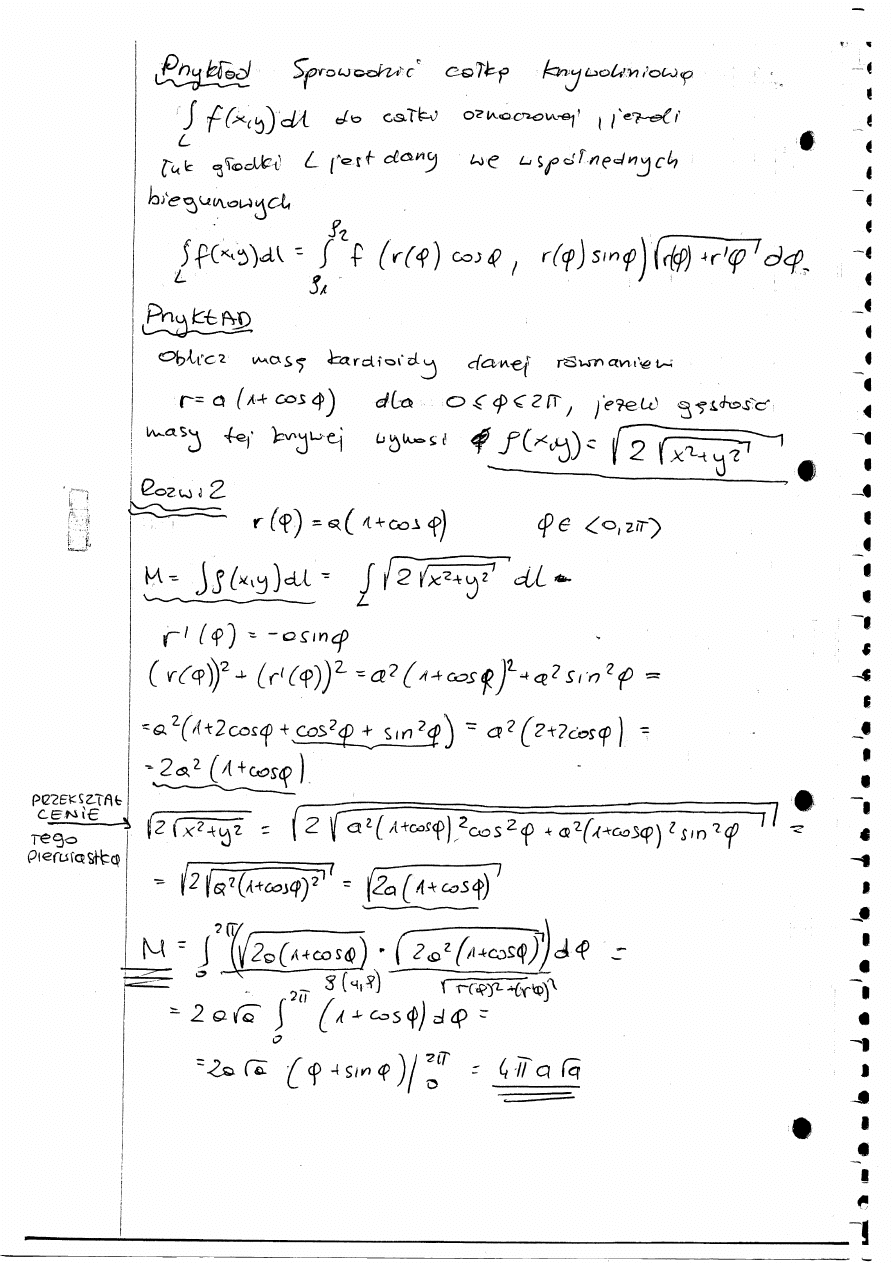 Przykład Sprowadzić całkę krzywoliniową
∫_L f(x,y)dl do całki oznaczonej, jeżeli
łuk gładki L jest dany we współrzędnych
biegunowych
∫_L f(x,y)dl = ∫_{φ1}^{φ2} f (r(φ) cosφ, r(φ) sinφ) √(r(φ) + r'φ) dφ.
PRZYKŁAD
Oblicz masę kardioidy danej równaniem
r = a (1+ cosφ) dla 0 ≤ φ ≤ 2π, jeżeli gęstość
masy tej krzywej wynosi ρ(x,y) = √(2√(x²+y²))
Rozwiąż
r(φ) = a(1+cosφ) φ ∈ <0,2π>
M = ∫ρ(x,y)dl = ∫_L √(2√(x²+y²)) dl
r'(φ) = -a sinφ
(r(φ))² + (r'(φ))² = a²(1+cosφ)² + a² sin²φ =
= a²(1+2cosφ + cos²φ + sin²φ) = a²(2+2cosφ) =
= 2a²(1+cosφ)
PRZEKSZTAŁ
CENIE
TEGO
pierwiastka
√(2√(x²+y²)) = √(2√(a²(1+cosφ)²cos²φ + a²(1+cosφ)²sin²φ)) =
= √(2√(a²(1+cosφ)²)) = √(2a(1+cosφ))
M = ∫_0^{2π} (√(2a(1+cosφ)) · √(2a²(1+cosφ))) dφ =
√(r(φ)²+(r'φ)²)
= 2a√a ∫_0^{2π} (1+cosφ)dφ =
= 2a√a (φ + sinφ)|_0^{2π} = 4π a√a